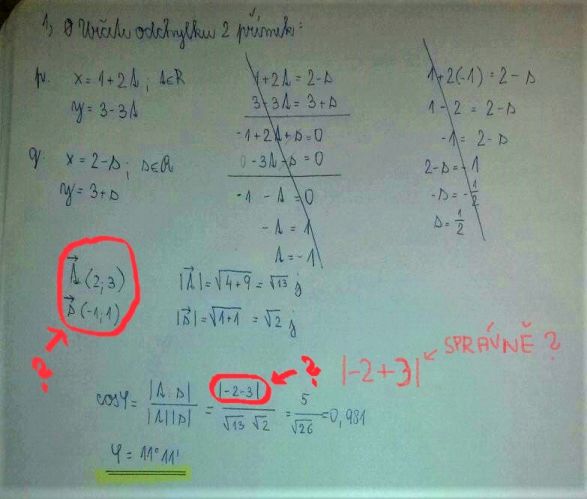 1, ⊙ Určete odchylku 2 přímek:
p: x = 1+2t; t∈R
y = 3-3t
q: x = 2-s; s∈R
y = 3+s
1+2t = 2-s
3-3t = 3+s
-1+2t+s=0
0-3t-s=0
-1 -t = 0
-t = 1
t = -1
1+2(-1) = 2-s
1-2 = 2-s
-1 = 2-s
2-s = -1
-s = -1/2
s = 1/2
t⃗ (2;3)
s⃗ (-1;1)
?
|t⃗| = √4+9 = √13 j
|s⃗| = √1+1 = √2 j
cosφ = |t·s| / |t||s| = |-2-3| / √13 √2 = 5 / √26 = 0,981
? |-2+3| SPRÁVNĚ ?
φ = 11°11'